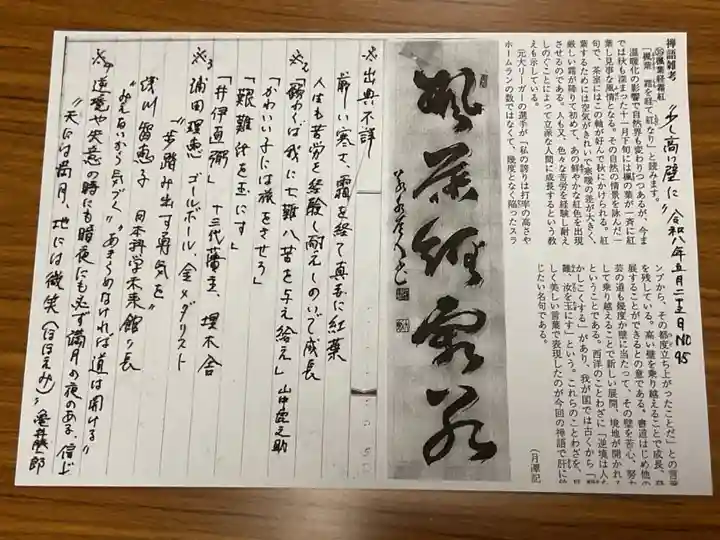 禅語雑考
㊴楓葉経霜紅
「楓葉 霜を経て紅なり」と読みます。
温暖化の影響で自然界も変わりつつあるが、今ま
では秋も深まった十一月下旬には楓の葉が一斉に紅
葉し見事な風情となる。その自然の情景を詠んだ一
句で、茶家にはこの軸が好んで秋にかけられる。紅
葉するためには空気がきれいで寒暖の差が大きく、
厳しい霜が降りて初めて、あの鮮やかな紅色を出現
させるのである。人も又、色々な苦労を経験し耐え
しのぐことによって立派な人間に成長するという教
えも示している。
元大リーガーの選手が「私の誇りは打率の高さや
ホームランの数ではなくて、幾度となく陥ったスラ
ンプから、その都度立ち上がったことだ」との言
を残している。高い壁を乗り越えることで成長、
展することができるとの意である。書道はじめ他の
芸の道も幾度か壁に当たって、その壁を苦心、努力
して乗り越えることで新しい展開、境地が開かれ
ということである。西洋のことわざに「逆境は人を
かしこくする」があり、我が国では古くから「
難、汝を玉にす」という。これらのことわざを、
く美しい言葉で表現したのが今回の禅語で肝に
じたい名句である。
(月潭記
〃少し高い壁に〃 令和八年五月二十五日 NO 95
楓葉経霜紅
※出典不詳
厳しい寒さ、霜を経て真赤に紅葉
人は苦労を経験し耐えしのいで成長
※2「願わくば我に七難八苦を与え給え」山中鹿之助
「かわいい子には旅をさせろ」
「艱難汝を玉にす」
「井伊直弼」 十三代藩主、埋木舎
※3 浦田理恵 ゴールボール 金メダリスト
〃一歩踏み出す勇気を〃
浅川智恵子 日本科学未来館〃長
〃みえないから気づく〃〃あきらめなければ道は開ける〃
※4 逆境や失意の時にも暗夜にも必ず満月の夜のある、信じ
〃天には満月、地には微笑(ほほえみ)〃